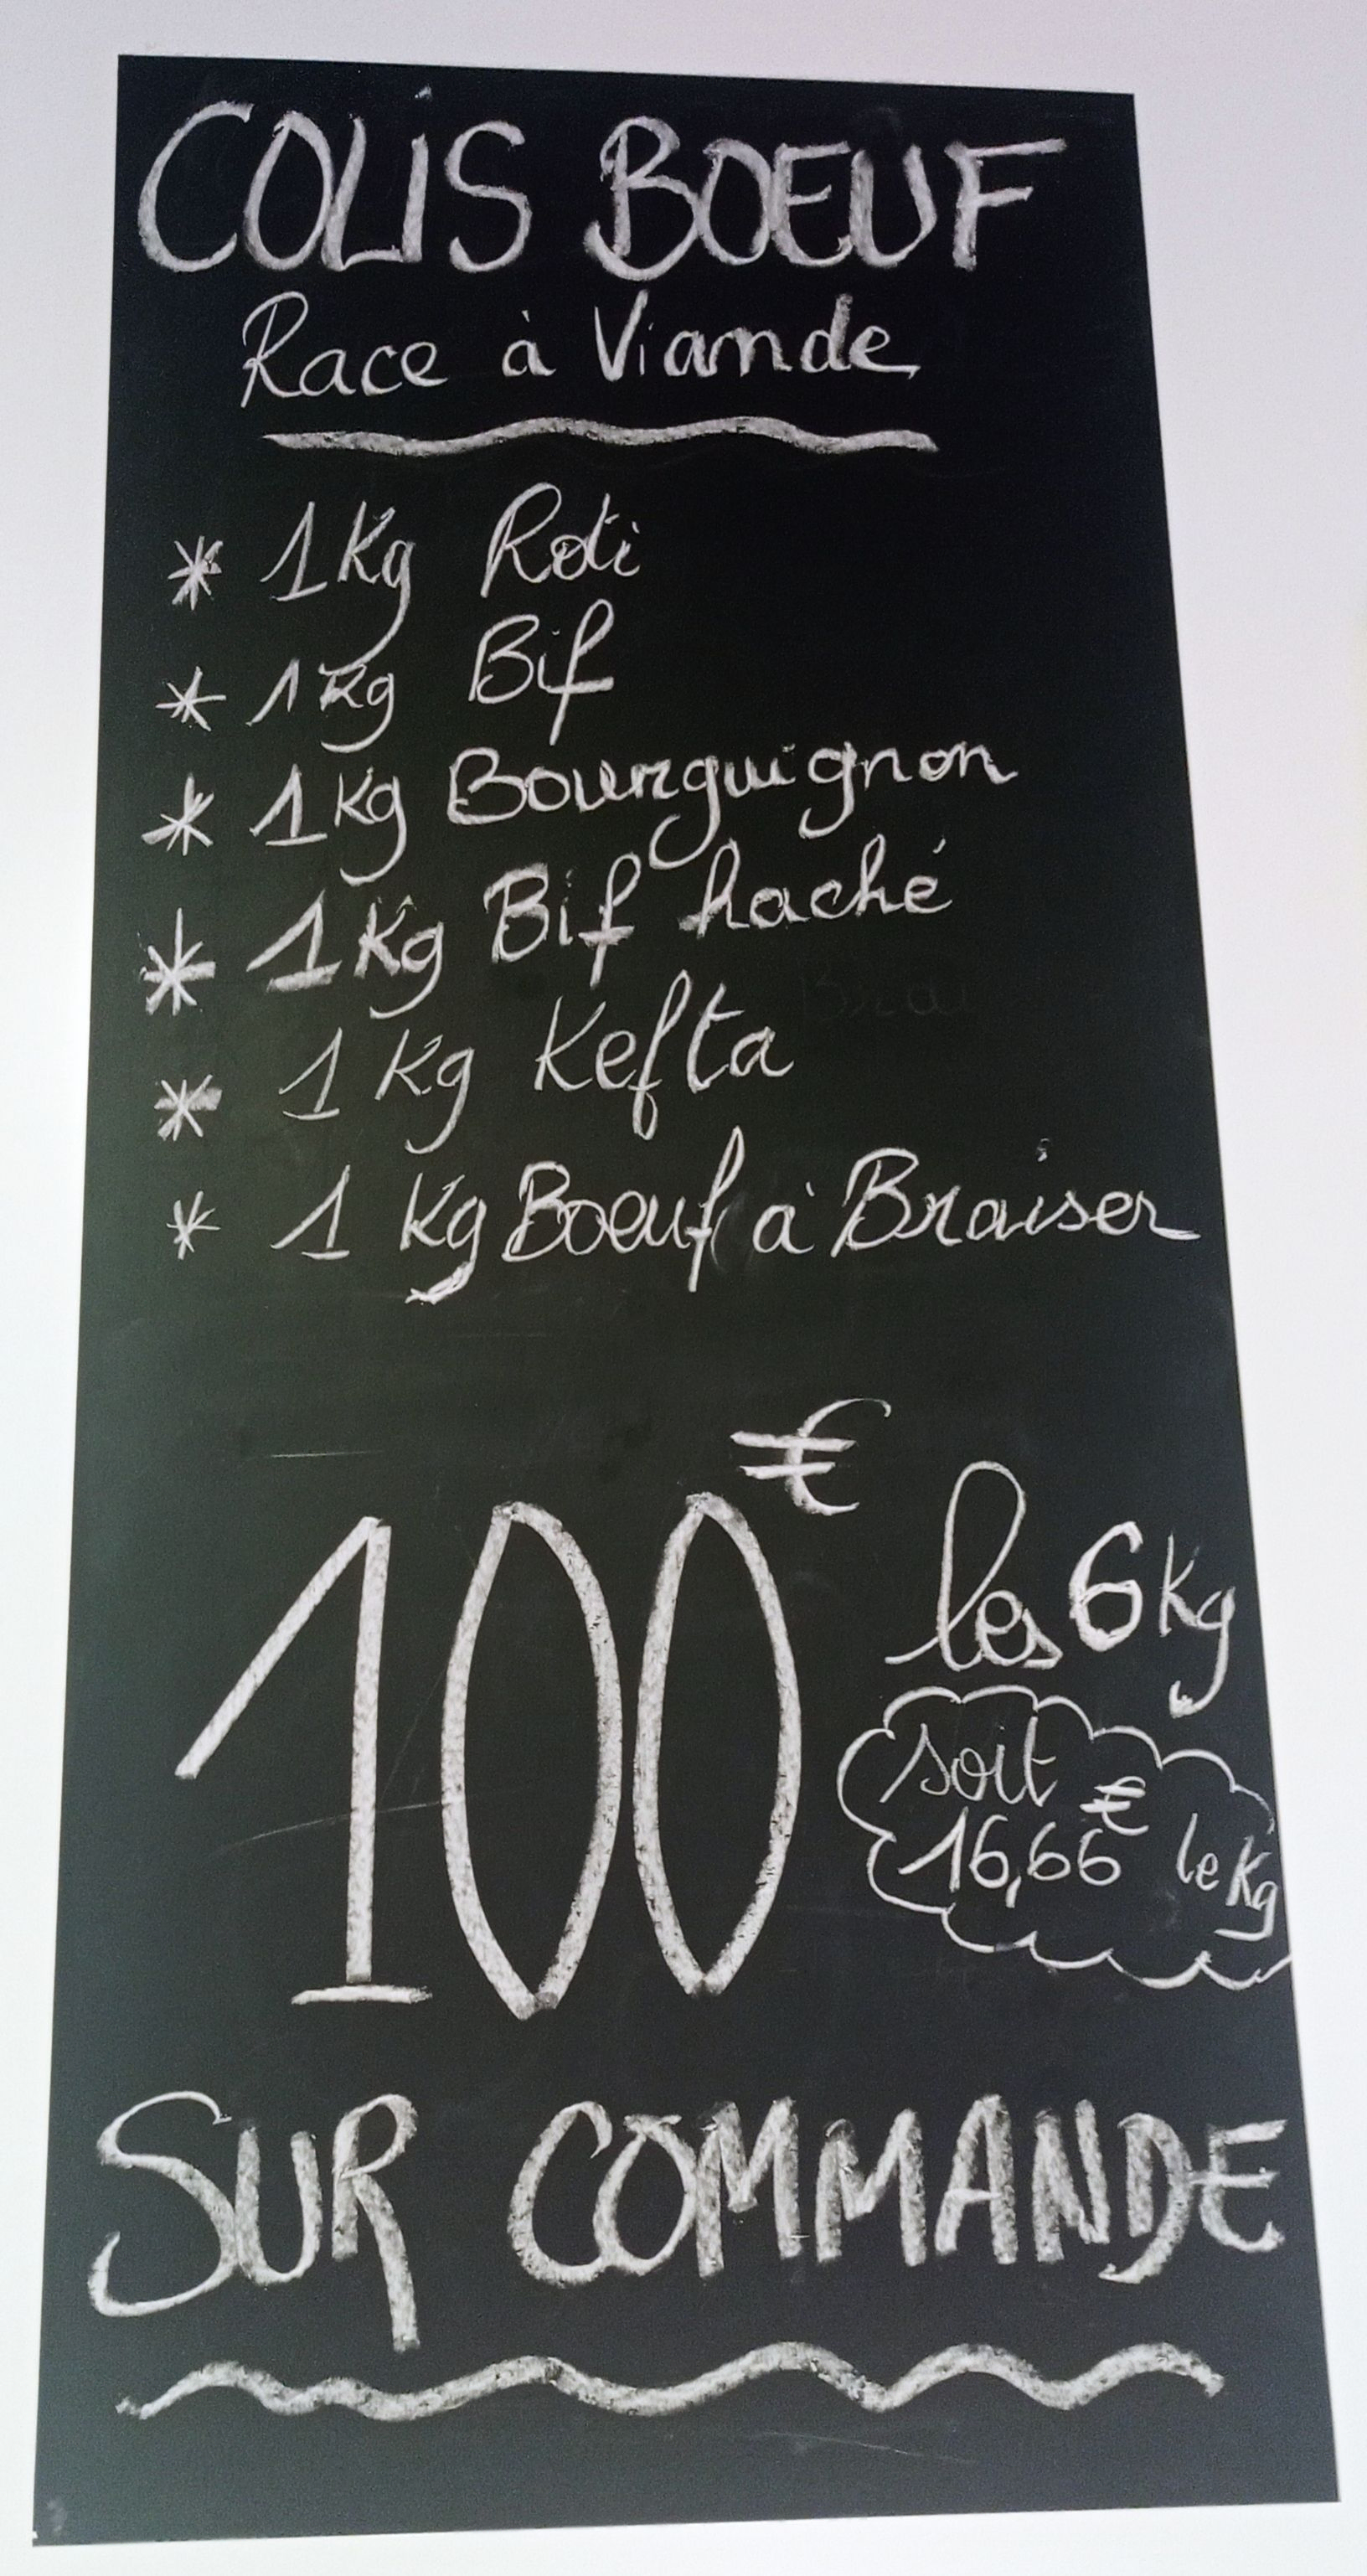 COLIS BOEUF
Race à Viande
* 1Kg Roti
* 1Kg Bif
* 1Kg Bourguignon
* 1Kg Bif haché
* 1Kg Kefta
* 1 Kg Boeuf à Braiser
100€ les 6Kg
soit
16,66€ le Kg
SUR COMMANDE